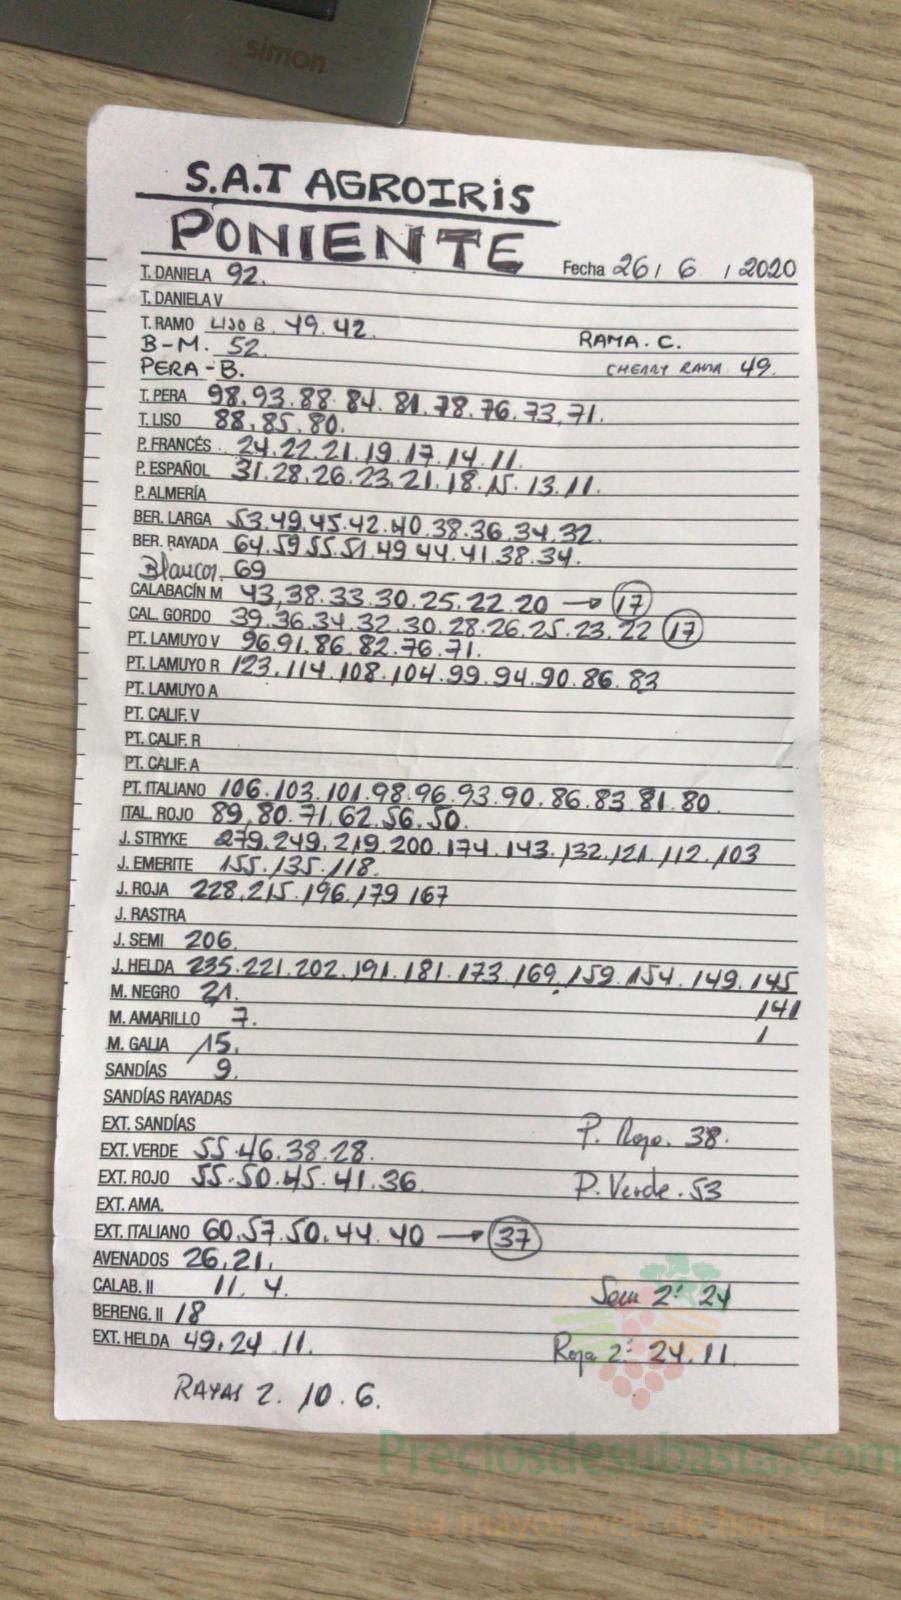 simon
S.A.T AGROIRIS
PONIENTE
Fecha 26 / 6 / 2020
T. DANIELA 92.
T. DANIELA V
T. RAMO LISO B. 49. 42.
RAMA. C.
B-M. 52
CHERRY RAMA 49.
PERA-B.
T. PERA 98.93.88.84.81.78.76.73,71.
T. LISO 88,85,80.
P. FRANCÉS 24.22.21.19.17.14.11.
P. ESPAÑOL 31.28,26.23.21.18.15.13.11.
P. ALMERÍA
BER. LARGA 53.49.45.42.40.38.36.34.32.
BER. RAYADA 64.59.55.51.49.44.41.38.34.
Blancos. 69
CALABACÍN M 43,38.33.30.25.22.20 → 17
CAL. GORDO 39.36.34.32.30.28.26.25.23.22 17
PT. LAMUYO V 96.91.86.82.76.71.
PT. LAMUYO R 123.114.108.104.99.94.90.86.83
PT. LAMUYO A
PT. CALIF. V
PT. CALIF. R
PT. CALIF. A
PT. ITALIANO 106.103.101.98.96.93.90.86.83.81.80
ITAL. ROJO 89,80.71,62.56.50.
J. STRYKE 279.249.219.200.174.143.132.121.112.103
J. EMERITE 155.135.118.
J. ROJA 228,215.196.179 167
J. RASTRA
J. SEMI 206.
J. HELDA 235.221.202.191.181.173.169.159.154.149.145
141
M. NEGRO 21.
M. AMARILLO 7.
M. GALIA 15.
SANDÍAS 9.
SANDÍAS RAYADAS
EXT. SANDÍAS
P. Rojo. 38.
EXT. VERDE 55.46.38.28.
EXT. ROJO 55.50.45.41.36
P. Verde. 53
EXT. AMA.
EXT. ITALIANO 60,57.50,44.40 → 37
AVENADOS 26,21.
CALAB. II 11. 4.
Sem 2ª 24
BERENG. II 18
EXT. HELDA 49,24.11.
Roja 2ª 24.11.
RAYAS 2. 10. 6.
Preciosdesubasta.com
La mayor web de hortalizas